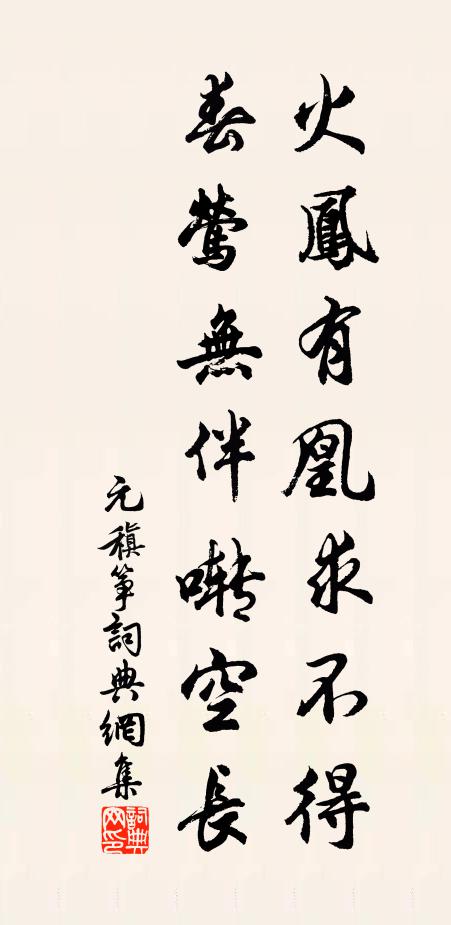 火鳳有凰求不得
春鶯無伴囀空長
元稹箏詞典網集
詞典網印